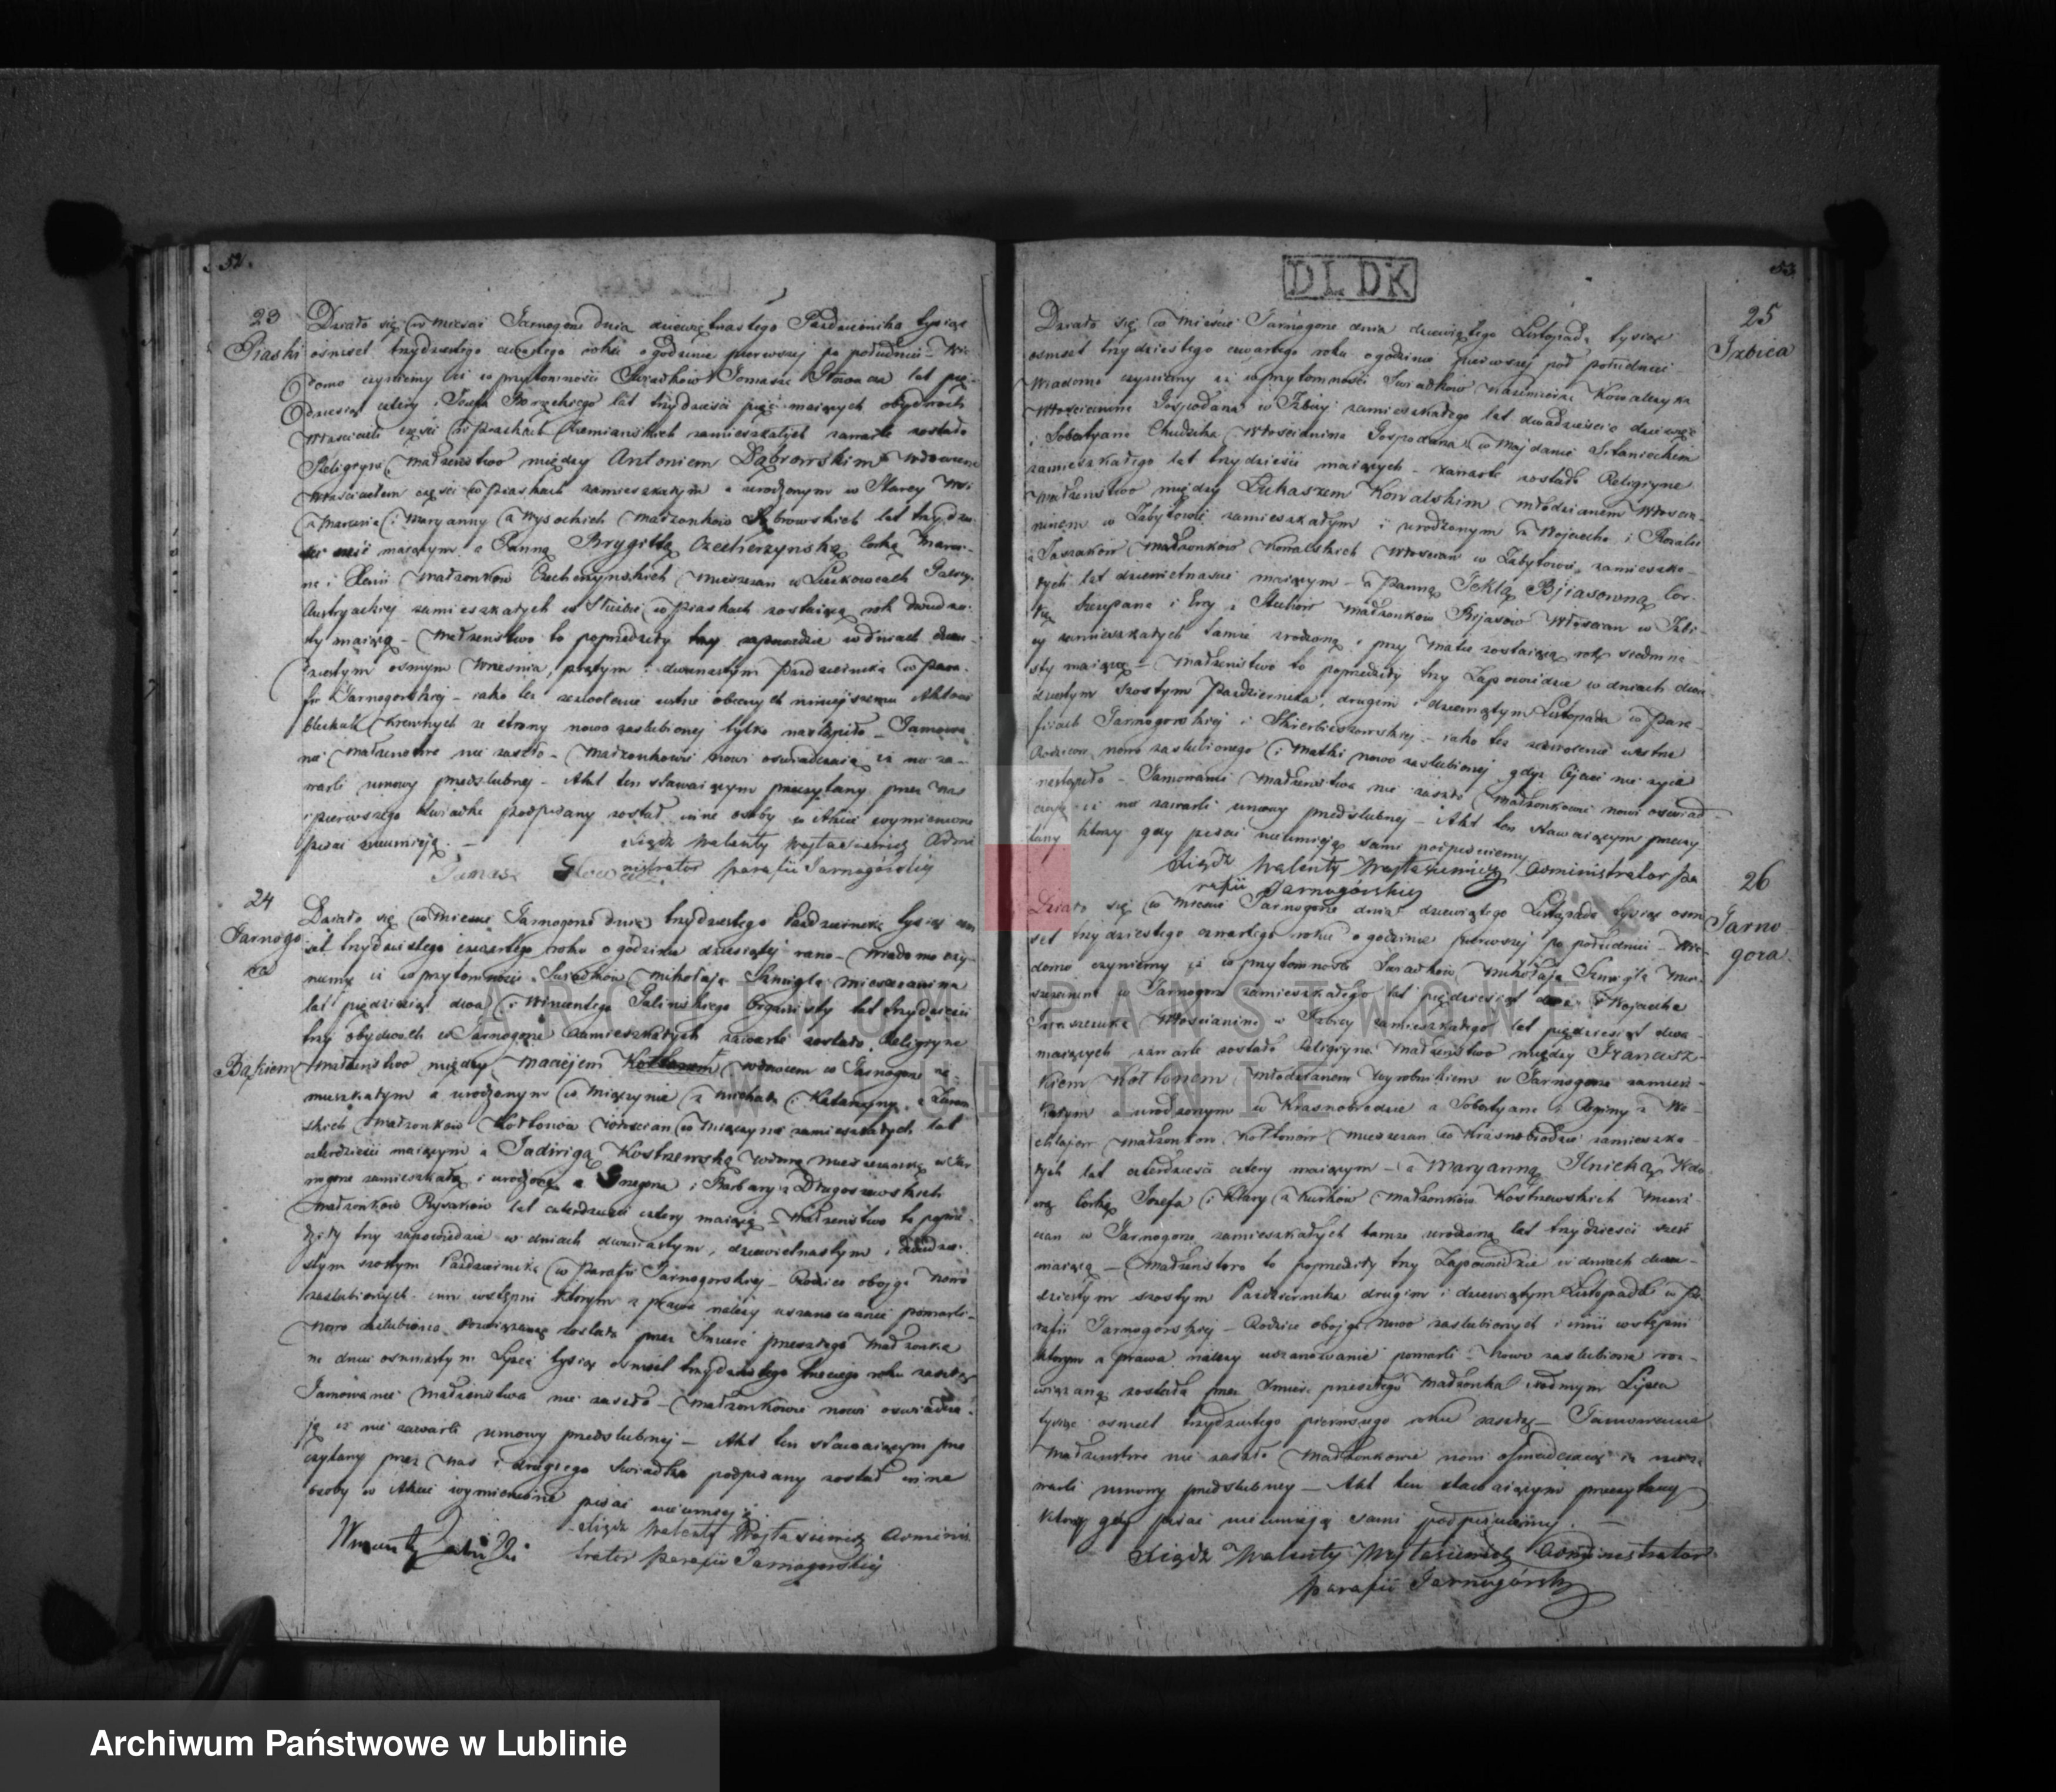 52.
23
Piaski
Działo się w Mieście Tarnogorze dnia dziewiętnastego Pazdziernika tysiąc
osmset trzydziestego czwartego roku o godzinie pierwszej po południu – Wia
domo czynimy iż w przytomności Świadków Tomasza Głowacza lat pięć
dziesiąt cztery i Józefa lat trzydzieści pięć maiących obydwoch
Właścicieli części w Piaskach zamieszkałych zawarte zostało
Religijne Małżeństwo między Antonim Dąbrowskim Wdowcem
Właścicielem części w Piaskach zamieszkałym a urodzonym w Starey Wsi
z Marcina i Maryanny z Wysockich Małżonków Dąbrowskich lat trzydzie
maiącym a Panną Brygittą Czecherzyńską Corką Marci
na i Małżonków Czecherzyńskich Mieszczan w
Austryackiej zamieszkałych w Służbie w Piaskach zostaiącą rok dwudzie
sty maiącą – Małżeństwo to poprzedziły trzy zapowiedzie w dniach dwu
dziestym osmym Września, piątym i dwunastym Pazdziernika w Para
fii Tarnogorskiej – iako też zezwolenie ustne obecnych niniejszemu Aktowi
Krewnych ze strony nowo zaslubionej tylko nastąpiło – Tamowa
nie Małżeństwa nie zaszło – Małżonkowie nowi oswiadczaią iż nie za
warli umowy przedslubnej – Akt ten stawaiącym przeczytany przez Nas
i pierwszego Świadka podpisany został, inne osoby w Akcie wymienione
pisać nieumieją. – Xiądz Walenty Wojtasiewicz Admi
Tomasz Głowacz nistrator parafii Tarnogórskiej
24
Tarnogo
ra
Działo się w Mieście Tarnogorze dnia trzydziestego Pazdziernika tysiąc osm
set trzydziestego czwartego roku o godzinie dziesiątej rano – Wiadomo czy
niemy iż w przytomności Świadków Mikołaja Szmigla Mieszczanina
lat pięćdziesiąt dwa i Wincentego Galińskiego Organisty lat trzydzieści
trzy obydwoch w Tarnogorze zamieszkałych zawarte zostało Religijne
Małżeństwo między Maciejem Wdowcem w Tarnogorze za
mieszkałym a urodzonym w Mięczynie z Michała i Katarzyny z
skich Małżonków Kołtonów Włościan w zamieszkałych lat
czterdzieści maiącym a Jadwigą Kostrzewską Wdową Mieszczanką w Tar
nogorze zamieszkałą i urodzoną z Grzegorza i Barbary z Długoszewskich
Małżonków Rysaków lat czterdzieści cztery maiącą – Małżeństwo to poprze
dziły trzy zapowiedzie w dniach dwunastym, dziewiętnastym i dwudzie
stym szostym Pazdziernika w Parafii Tarnogorskiej – Rodzice obojga Nowo
zaslubionych inni wstępni ktorym z prawa należy uszanowanie pomarli –
Nowo zaslubiona rozwiązana została przez Śmierć przeszłego Małżonka
na dniu osmnastym Lipca tysiąc osmset trzydziestego trzeciego roku zaszłą
Tamowanie Małżeństwa nie zaszło – Małżonkowie nowi oswiadcza
ją iż nie zawarli umowy przedslubnej – Akt ten stawaiącym prze
czytany przez Nas i drugiego Świadka podpisany został inne
osoby w Akcie wymienione pisać nieumieją.
Xiądz Walenty Wojtasiewicz Adminis
trator parafii Tarnogorskiej
53
DLDK
25
Izbica
Działo się w Mieście Tarnogorze dnia dziewiątego Listopada tysiąc
osmset trzydziestego czwartego roku o godzinie pierwszej po południu
Wiadomo czyniemy iż w przytomności Świadków Kazimierza Kowalczyka
Włościanina Gospodarza w Izbicy zamieszkałego lat dwadzieścia dziewięć
i Sobestyana Chudzika Włościanina Gospodarza w Majdanie
zamieszkałego lat trzydzieści maiących – zawarte zostało Religijne
Małżeństwo między Łukaszem Kowalskim Młodzianem Włoscia
ninem w Zabytowie zamieszkałym i urodzonym z Wojciecha i Rozalii
Małżonków Kowalskich Włościan w Zabytowie zamieszka
łych lat dziewietnascie maiącym – a Panną Teklą Bijasowną Cor
ką Szczepana i Ewy z Małżonków Bijasów Włościan w Izbi
cy zamieszkałych tamże zrodzoną i przy Matce zostaiącą rok siedmna
sty maiącą – Małżeństwo to poprzedziły trzy Zapowiedzie w dniach dwu
dziestym szostym Pazdziernika, drugim i dziewiątym Listopada w Para
fiiach Tarnogorskiej i Skierbieszowskiej – iako też zezwolenie ustne
Rodzicow nowo zaslubionego i Matki nowo zaslubionej gdyż Ojciec nie żyie
nastąpiło – Tamowanie Małżeństwa nie zaszło Małżonkowie nowi oswiad
czaią iż nie zawarli umowy przedslubnej – Akt ten stawaiącym przeczy
tany ktorzy gdy pisać nieumieją sami podpisuiemy
Xiądz Walenty Wojtasiewicz Administrator pa
rafii Tarnogórskiej
26
Tarno
gora
Działo się w Mieście Tarnogorze dnia dziewiątego Listopada tysiąc osm
set trzydziestego czwartego roku o godzinie pierwszej po południu – Wia
domo czyniemy iż w przytomności Świadków Mikołaja Szmigla Mie
szczanina w Tarnogorze zamieszkałego lat pięćdziesiąt dwa i Wojciecha
Iwaszczuka Włościanina w Izbicy zamieszkałego lat pięćdziesiąt dwa
maiących zawarte zostało Religijne Małżeństwo między Francisz
kiem Kołtonem Młodzianem Wyrobnikiem w Tarnogorze zamiesz
kałym a urodzonym w Krasnobrodzie z Sobestyana i Reginy z
Małżonków Kołtonów Mieszczan w Krasnobrodzie zamieszka
łych lat czterdzieści cztery maiącym – a Maryanną Ilnicką Wdo
wą Corką Jozefa i Klary z Kurków Małżonków Kostrzewskich Miesz
czan w Tarnogorze zamieszkałych tamże urodzoną lat trzydzieści sześć
maiącą – Małżeństwo to poprzedziły trzy Zapowiedzie w dniach dwu
dziestym szostym Pazdziernika drugim i dziewiątym Listopada w Pa
rafii Tarnogorskiej – Rodzice obojga Nowo zaslubionych i inni wstępni
ktorym z prawa należy uszanowanie pomarli – Nowo zaslubiona roz
wiązaną została przez Śmierć przeszłego Małżonka siodmym Lipca
tysiąc osmset trzydziestego pierwszego roku zaszłą – Tamowanie
Małżeństwa nie zaszło Małżonkowie nowi oświadczaią iż nieza
warli umowy przedslubney – Akt ten stawaiącym przeczytany
ktorzy gdy pisać nieumieją sami podpisuiemy. –
Xiądz Walenty Wojtasiewicz Administrator
parafii Tarnogórskiej
ARCHIWUM PAŃSTWOWE
W LUBLINIE
Archiwum Państwowe w Lublinie